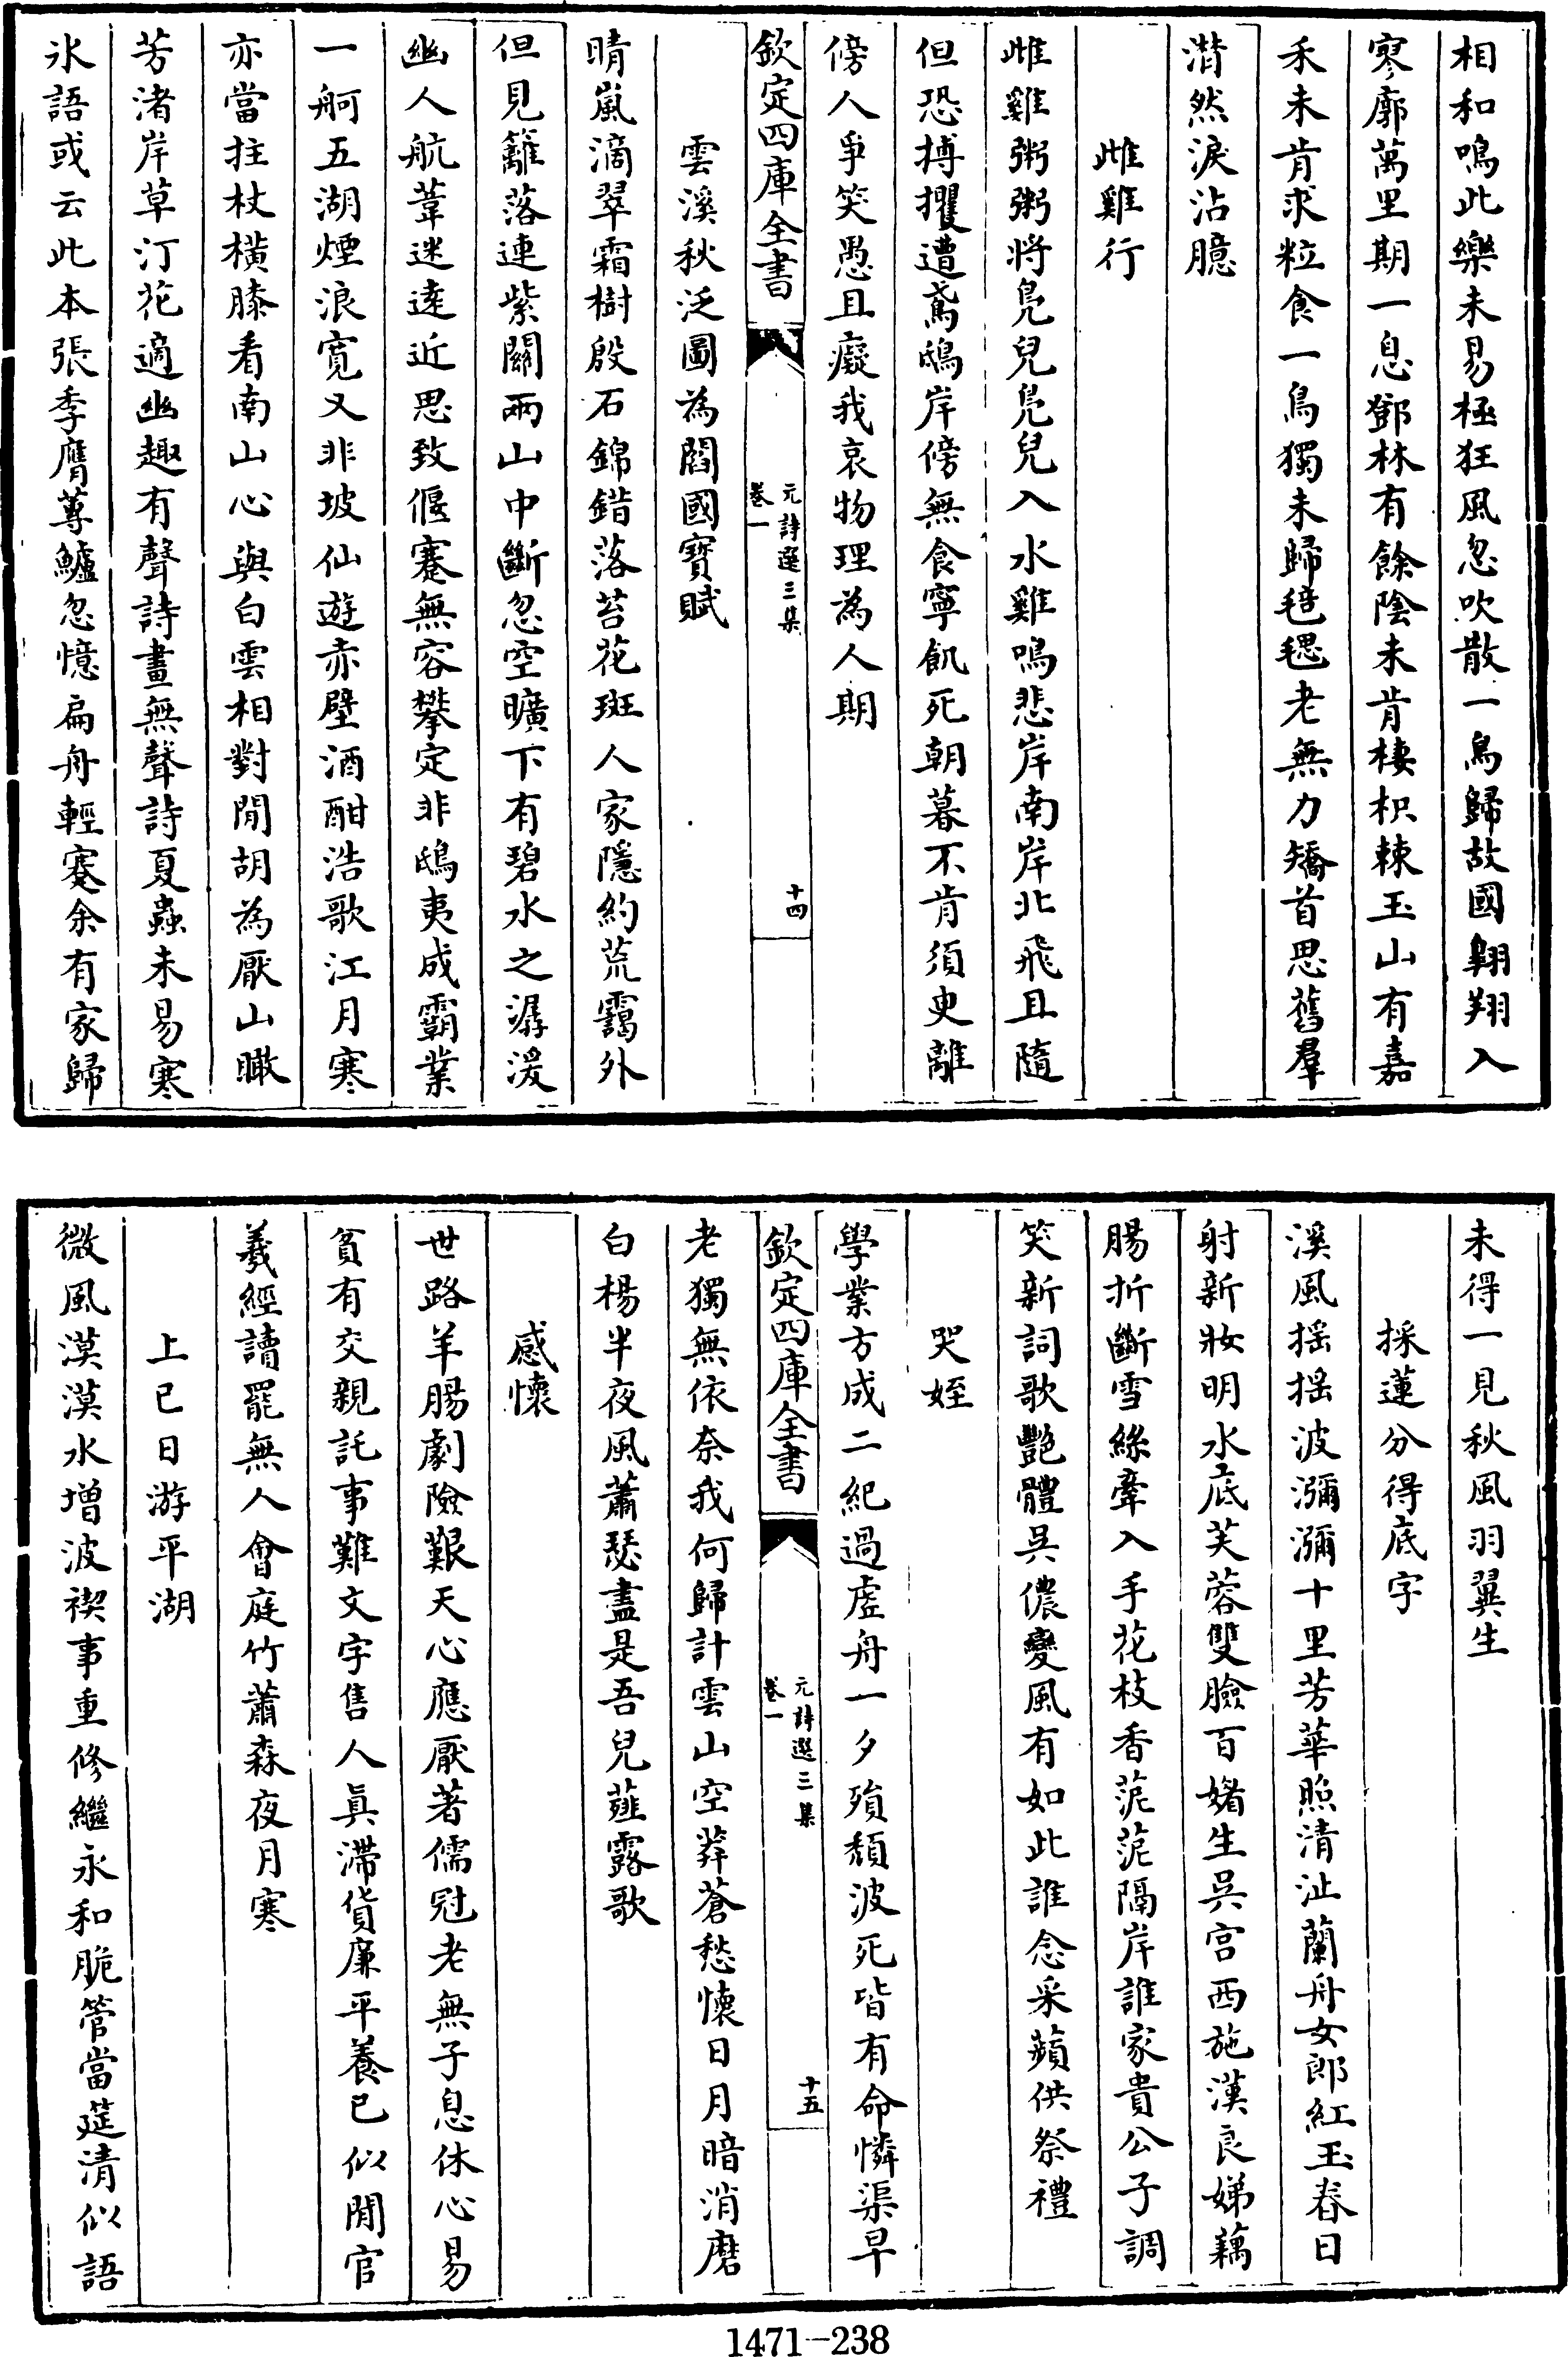 相和鳴此樂未易極狂風忽吹散一鳥歸故國翺翔入
寥廓萬里期一息鄧林有餘陰未肯棲枳棘玉山有嘉
禾未肯求粒食一鳥獨未歸毰毸老無力矯首思舊羣
潸然淚沾臆
雌雞行
雌雞粥粥將鳧兒鳧兒入水雞鳴悲岸南岸北飛且隨
但恐搏攫遭鳶鴟岸傍無食寧飢死朝暮不肯須臾離
傍人爭笑愚且癡我哀物理為人期
欽定四庫全書
元詩選三集
卷一
十四
雲溪秋泛圖為閻國寶賦
晴嵐滴翠霜樹殷石錦錯落苔花斑人家隱約荒靄外
但見籬落連紫關兩山中斷忽空曠下有碧水之潺湲
幽人航葦迷遠近思致偃蹇無容攀定非鴟夷成霸業
一舸五湖煙浪寛又非坡仙遊赤壁酒酣浩歌江月寒
亦當拄杖橫膝看南山心與白雲相對閒胡為厭山瞰
芳渚岸草汀花適幽趣有聲詩畫無聲詩夏蟲未易寒
氷語或云此本張季鷹蓴鱸忽憶扁舟輕蹇余有家歸
未得一見秋風羽翼生
採蓮分得底字
溪風揺揺波瀰瀰十里芳華照清沚蘭舟女郎紅玉春日
射新妝明水底芙蓉雙臉百媚生吳宫西施漢良娣藕
腸折斷雪絲牽入手花枝香茫茫隔岸誰家貴公子調
笑新詞歌艷體吳儂變風有如此誰念采蘋供祭禮
哭姪
學業方成二紀過虛舟一夕殞頹波死皆有命憐渠早
欽定四庫全書
元詩選三集
卷一
十五
老獨無依奈我何歸計雲山空莽蒼愁懷日月暗消磨
白楊半夜風蕭瑟盡是吾兒薤露歌
感懷
世路羊腸劇險艱天心應厭著儒冠老無子息休心易
貧有交親託事難文字售人真滯貨廉平養已似閒官
羲經讀罷無人會庭竹蕭森夜月寒
上巳日游平湖
微風漠漠水增波禊事重修繼永和脆管當筵清似語
1471-238